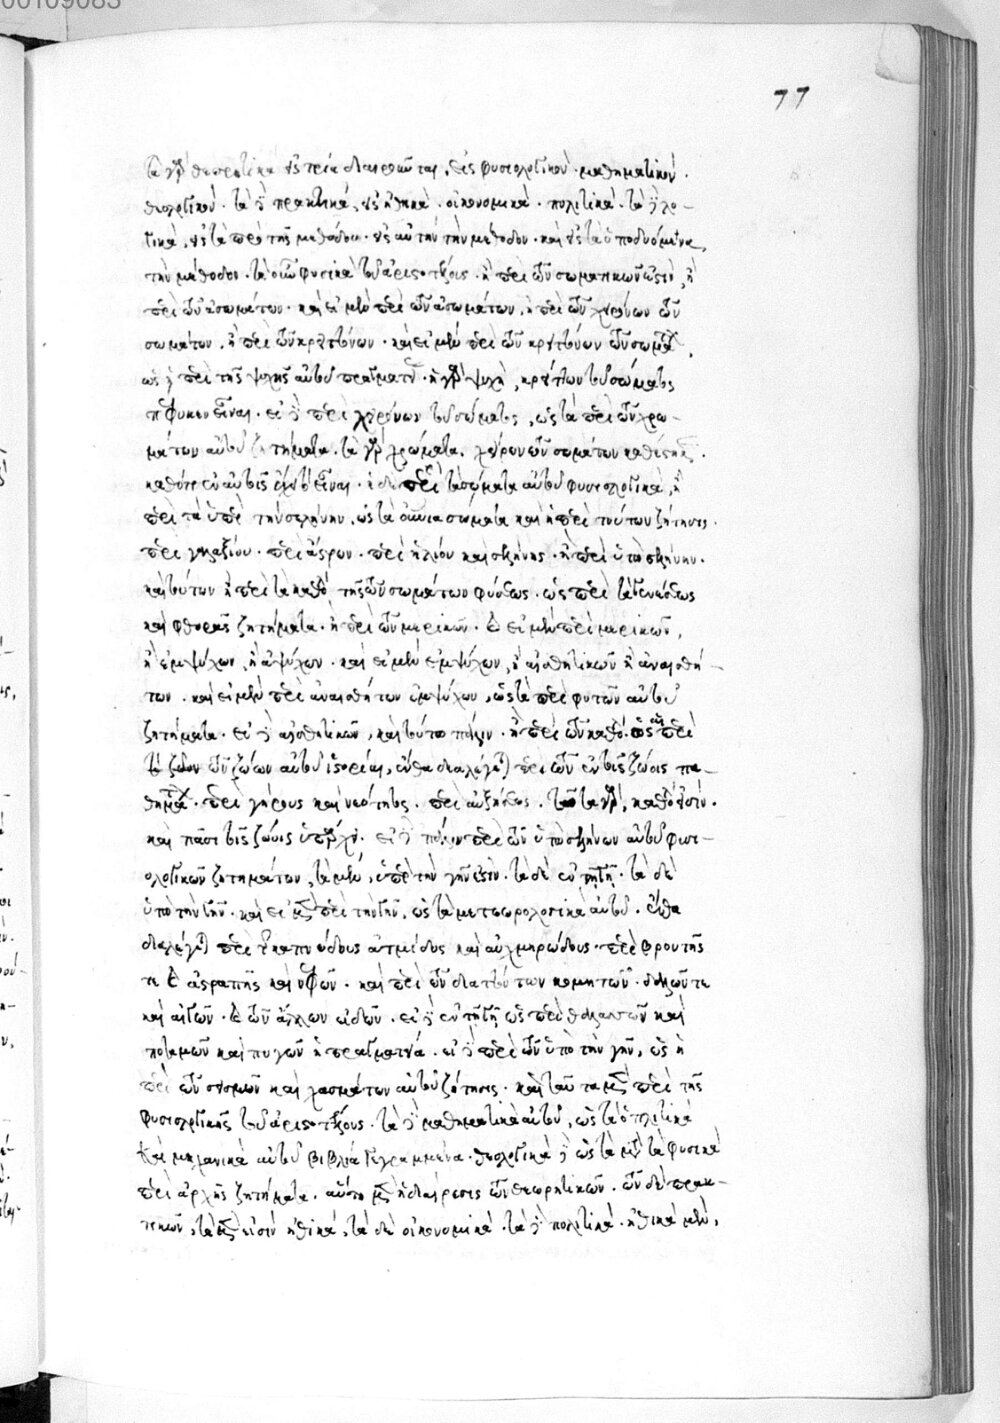 77
τὰ γὰρ θεωρητικὰ εἰς τρία διαιροῦνται, εἰς φυσιολογικὸν· μαθηματικὸν·
θεολογικόν· τὰ δὲ πρακτικὰ, εἰς ἠθικὰ· οἰκονομικὰ· πολιτικὰ· τὰ δὲ λο-
γικὰ, εἰς τὰ πρὸ τῆς μεθόδου· εἰς αὐτὴν τὴν μέθοδον· καὶ εἰς τὰ ὑποδυόμενα
τὴν μέθοδον· τὰ οὖν φυσικὰ τοῦ ἀριστοτέλους· ἢ περὶ τῶν σωματικῶν ἐστὶν, ἢ
περὶ τῶν ἀσωμάτων· καὶ εἰ μὲν περὶ τῶν ἀσωμάτων, ἢ περὶ τῶν χειρόνων τῶν
σωμάτων, ἢ περὶ τῶν κρειττόνων· καὶ εἰ μὲν περὶ τῶν κρειττόνων τῶν σωμάτων,
ὡς ἡ περὶ τῆς ψυχῆς αὐτοῦ πραγματεία· ἡ γὰρ ψυχὴ, κρείττων τοῦ σώματος
πέφυκεν εἶναι· εἰ δὲ περὶ χειρόνων τοῦ σώματος, ὡς τὰ περὶ τῶν χρω-
μάτων αὐτοῦ ζητήματα· τὰ γὰρ χρώματα, χείρον τῶν σωμάτων καθέστηκεν·
καθότι ἐν αὐτοῖς ἔχει τὸ εἶναι· ἡ δὲ περὶ τὰ σώματα αὐτοῦ φυσιολογικὰ, ἢ
περὶ τὰ ὑπὲρ τὴν σελήνην, ὡς τὰ οὐράνια σώματα καὶ ἡ περὶ τούτων ζήτησις·
περὶ γαλαξίου· περὶ ἄστρων· περὶ ἡλίου καὶ σελήνης· ἢ περὶ ὑπὸ σελήνην·
καὶ τούτων ἢ περὶ τὰ καθόλου τῆς τῶν σωμάτων φύσεως· ὡς περὶ τὰ γενέσεως
καὶ φθορᾶς ζητήματα· ἢ περὶ τῶν μερικῶν· καὶ εἰ μὲν περὶ μερικῶν,
ἢ ἐμψύχων, ἢ ἀψύχων· καὶ εἰ μὲν ἐμψύχων, ἢ αἰσθητικῶν ἢ ἀναισθή-
των· καὶ εἰ μὲν περὶ ἀναισθήτων ἐμψύχων, ὡς τὰ περὶ φυτῶν αὐτοῦ
ζητήματα· εἰ δὲ αἰσθητικῶν, καὶ τοῦτο πάλιν· ἢ περὶ τῶν καθόλου· ὡς περὶ
τῶν ζώων αὐτοῦ ἱστορίαι, ἔνθα διαλέγεται περὶ τῶν ἐν τοῖς ζώοις πα-
θημάτων· περὶ γήρους καὶ νεότητος· περὶ αὐξήσεως· ταῦτα γὰρ, καθόλου εἰσὶν·
καὶ πᾶσι τοῖς ζώοις ὑπάρχει· εἰ δὲ πάλιν περὶ τῶν ὑπὸ σελήνην αὐτοῦ φυσι-
ολογικῶν ζητημάτων, τὰ μὲν, ὑπὲρ τὴν γῆν ἐστὶν· τὰ δὲ ἐν τῇ γῇ· τὰ δὲ
ὑπὸ τὴν γῆν· καὶ εἰ μὲν περὶ τὴν γῆν, ὡς τὰ μετεωρολογικὰ αὐτοῦ· ἔνθα
διαλέγεται περὶ καπνώδους ἀτμίδος καὶ αὐχμηρώδους· περὶ βροντῆς
τε καὶ ἀστραπῆς καὶ ὑετῶν· καὶ περὶ τῶν διαττόντων κομητῶν· δοκῶν τε
καὶ αἰγῶν· καὶ τῶν ἄλλων εἰδῶν· εἰ δὲ ἐν τῇ γῇ ὡς περὶ θαλασσῶν καὶ
ποταμῶν καὶ πηγῶν ἡ πραγματεία· εἰ δὲ περὶ τῶν ὑπὸ τὴν γῆν, ὡς ἡ
περὶ τῶν σεισμῶν καὶ χασμάτων αὐτοῦ ζήτησις· καὶ ταῦτα μὲν περὶ τῆς
φυσιολογικῆς τοῦ ἀριστοτέλους· τὰ δὲ μαθηματικὰ αὐτοῦ, ὡς τὰ ὀπτικὰ
καὶ μηχανικὰ αὐτοῦ βιβλία γεγραμμένα· θεολογικὰ δὲ ὡς τὰ μετὰ τὰ φυσικὰ
περὶ ἀρχῆς ζητήματα· αὕτη μὲν ἡ διαίρεσις τῶν θεωρητικῶν· τῶν δὲ πρακ-
τικῶν, τὰ μὲν εἰσὶν ἠθικὰ, τὰ δὲ οἰκονομικὰ· τὰ δὲ πολιτικὰ· ἠθικὰ μὲν,